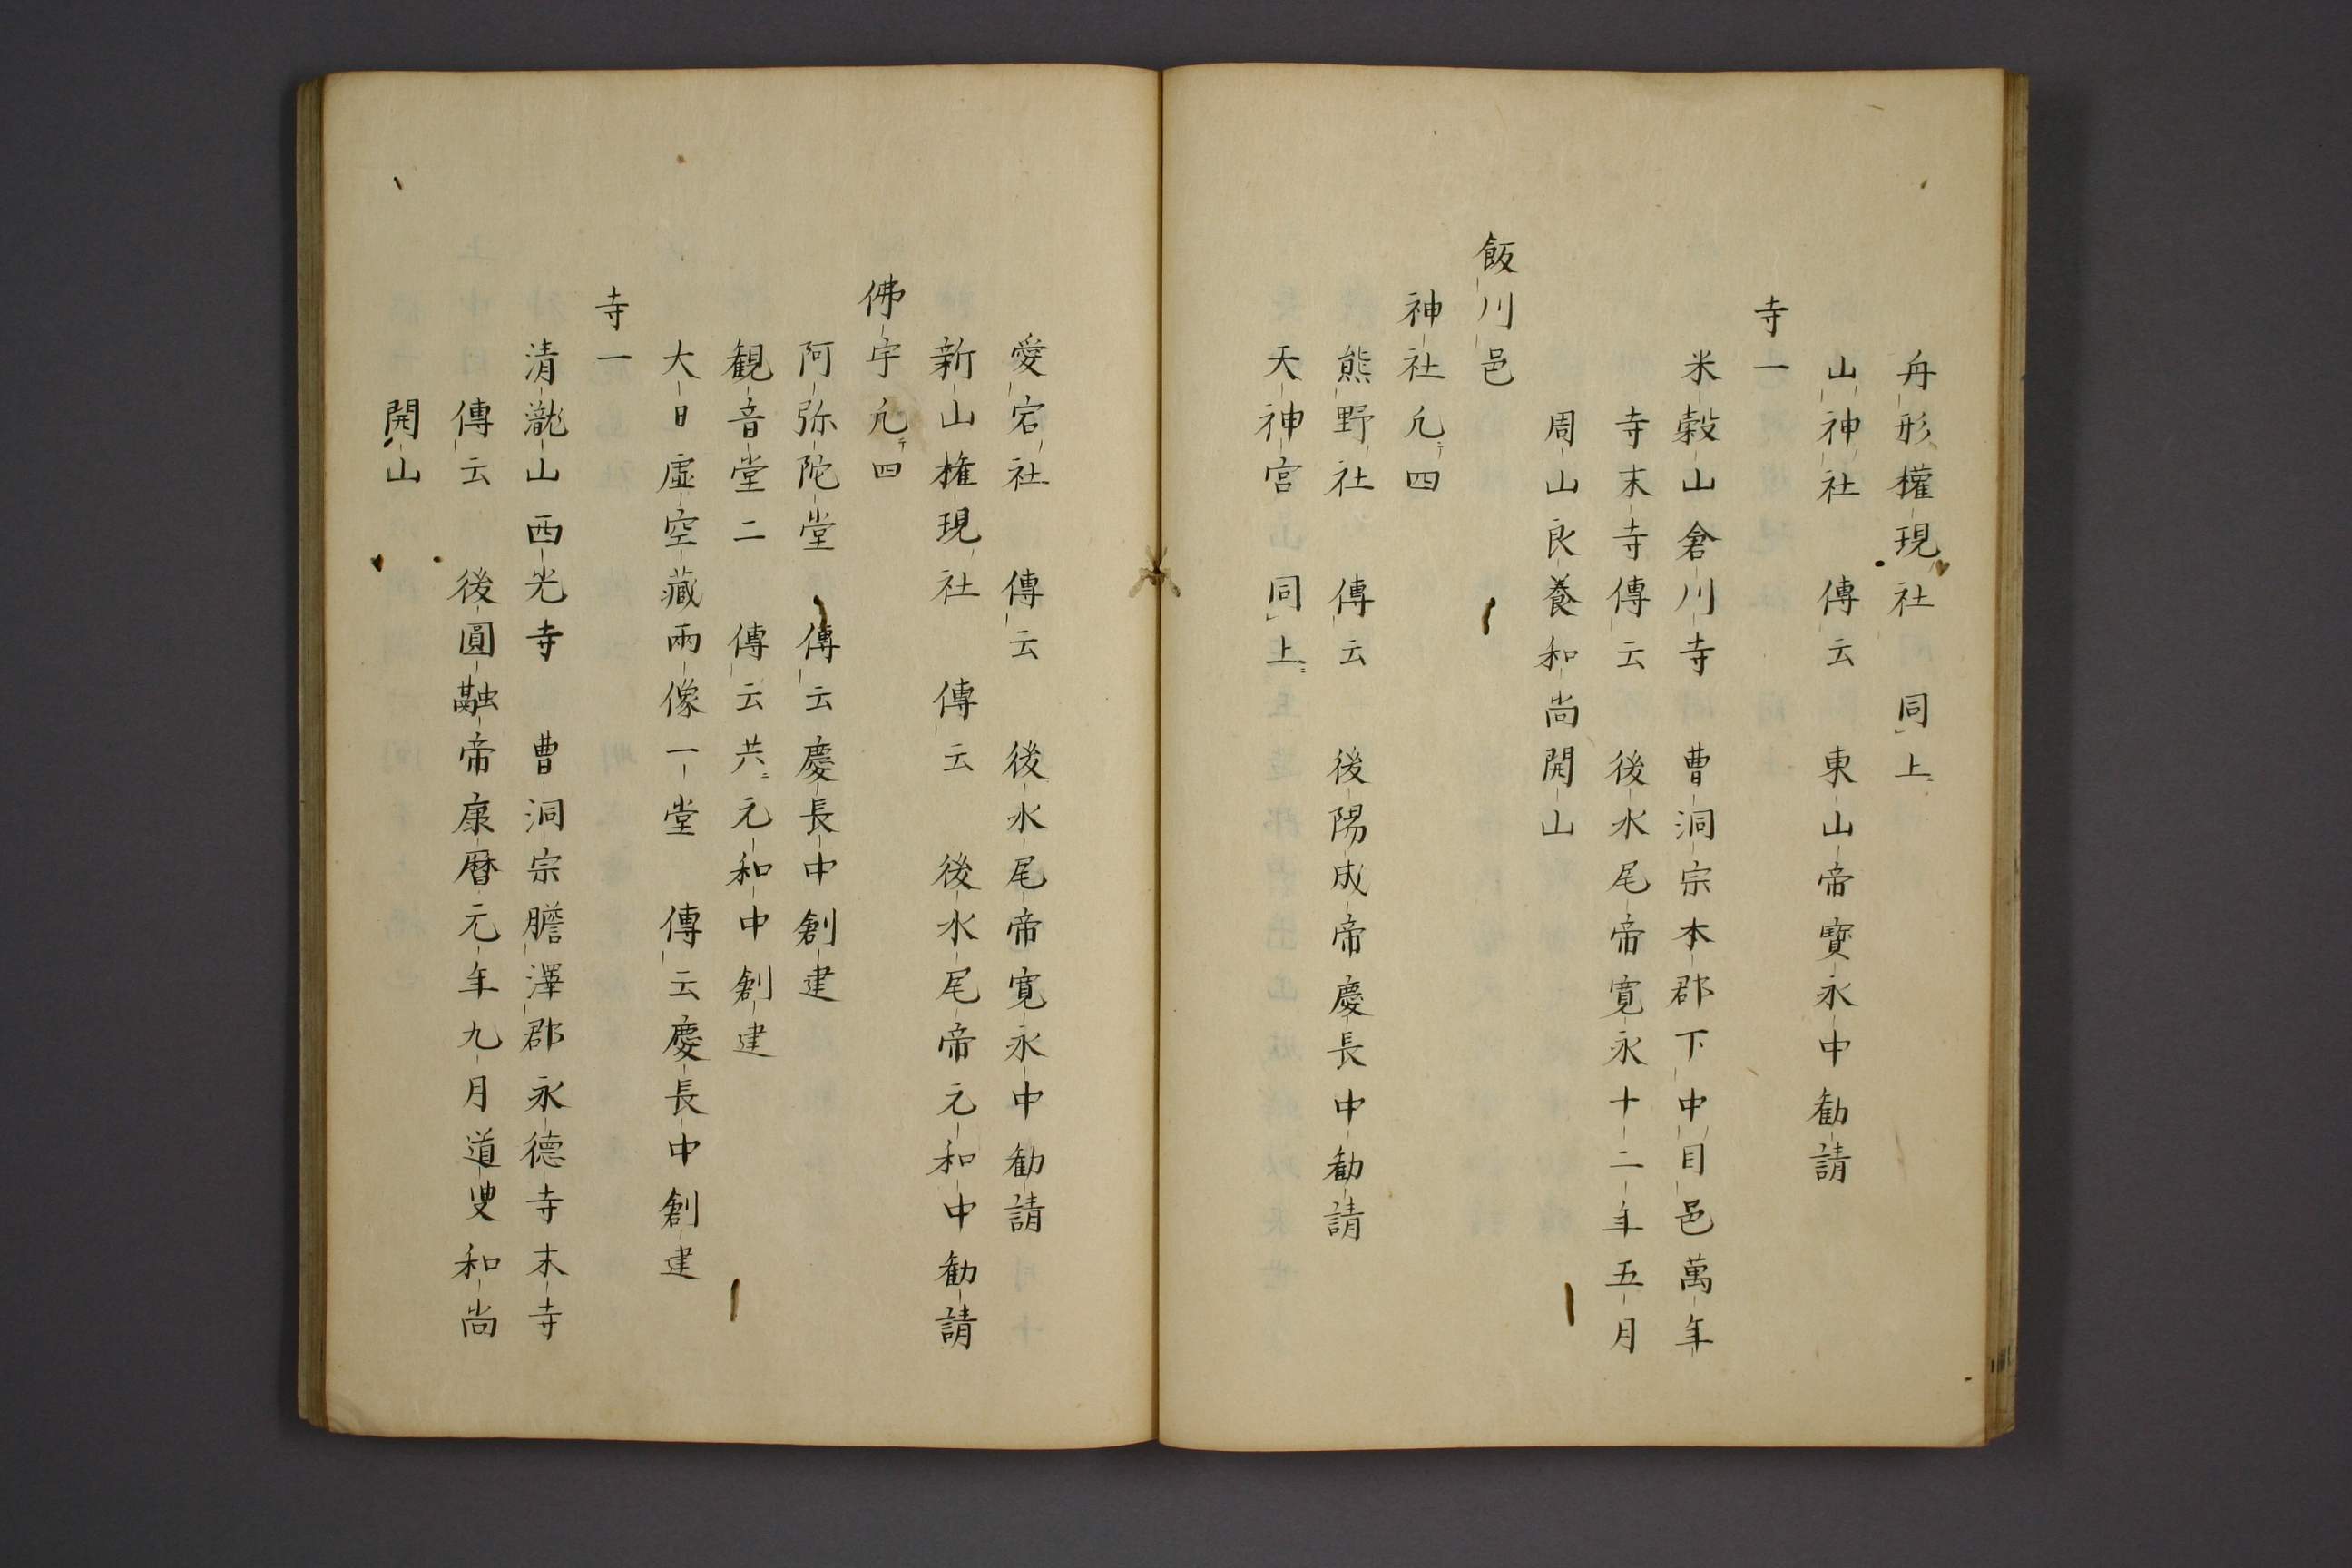 舟形權現社 同上
山神社 傳云 東山帝寶永中勧請
寺一
米榖山倉川寺 曹洞宗本郡下中目邑萬年
寺末寺傳云 後水尾帝寛永十二年五月
周山良養和尚開山
飯川邑
神社凢四
熊野社 傳云 後陽成帝慶長中勧請
天神宮 同上
愛宕社 傳云 後水尾帝寛永中勧請
新山権現社 傳云 後水尾帝元和中勧請
佛宇凢四
阿弥陀堂 傳云慶長中創建
観音堂二 傳云共元和中創建
大日虚空藏兩像一堂 傳云慶長中創建
寺一
清瀧山西光寺 曹洞宗膽澤郡永德寺末寺
傳云 後圓融帝康暦元年九月道叟和尚
開山